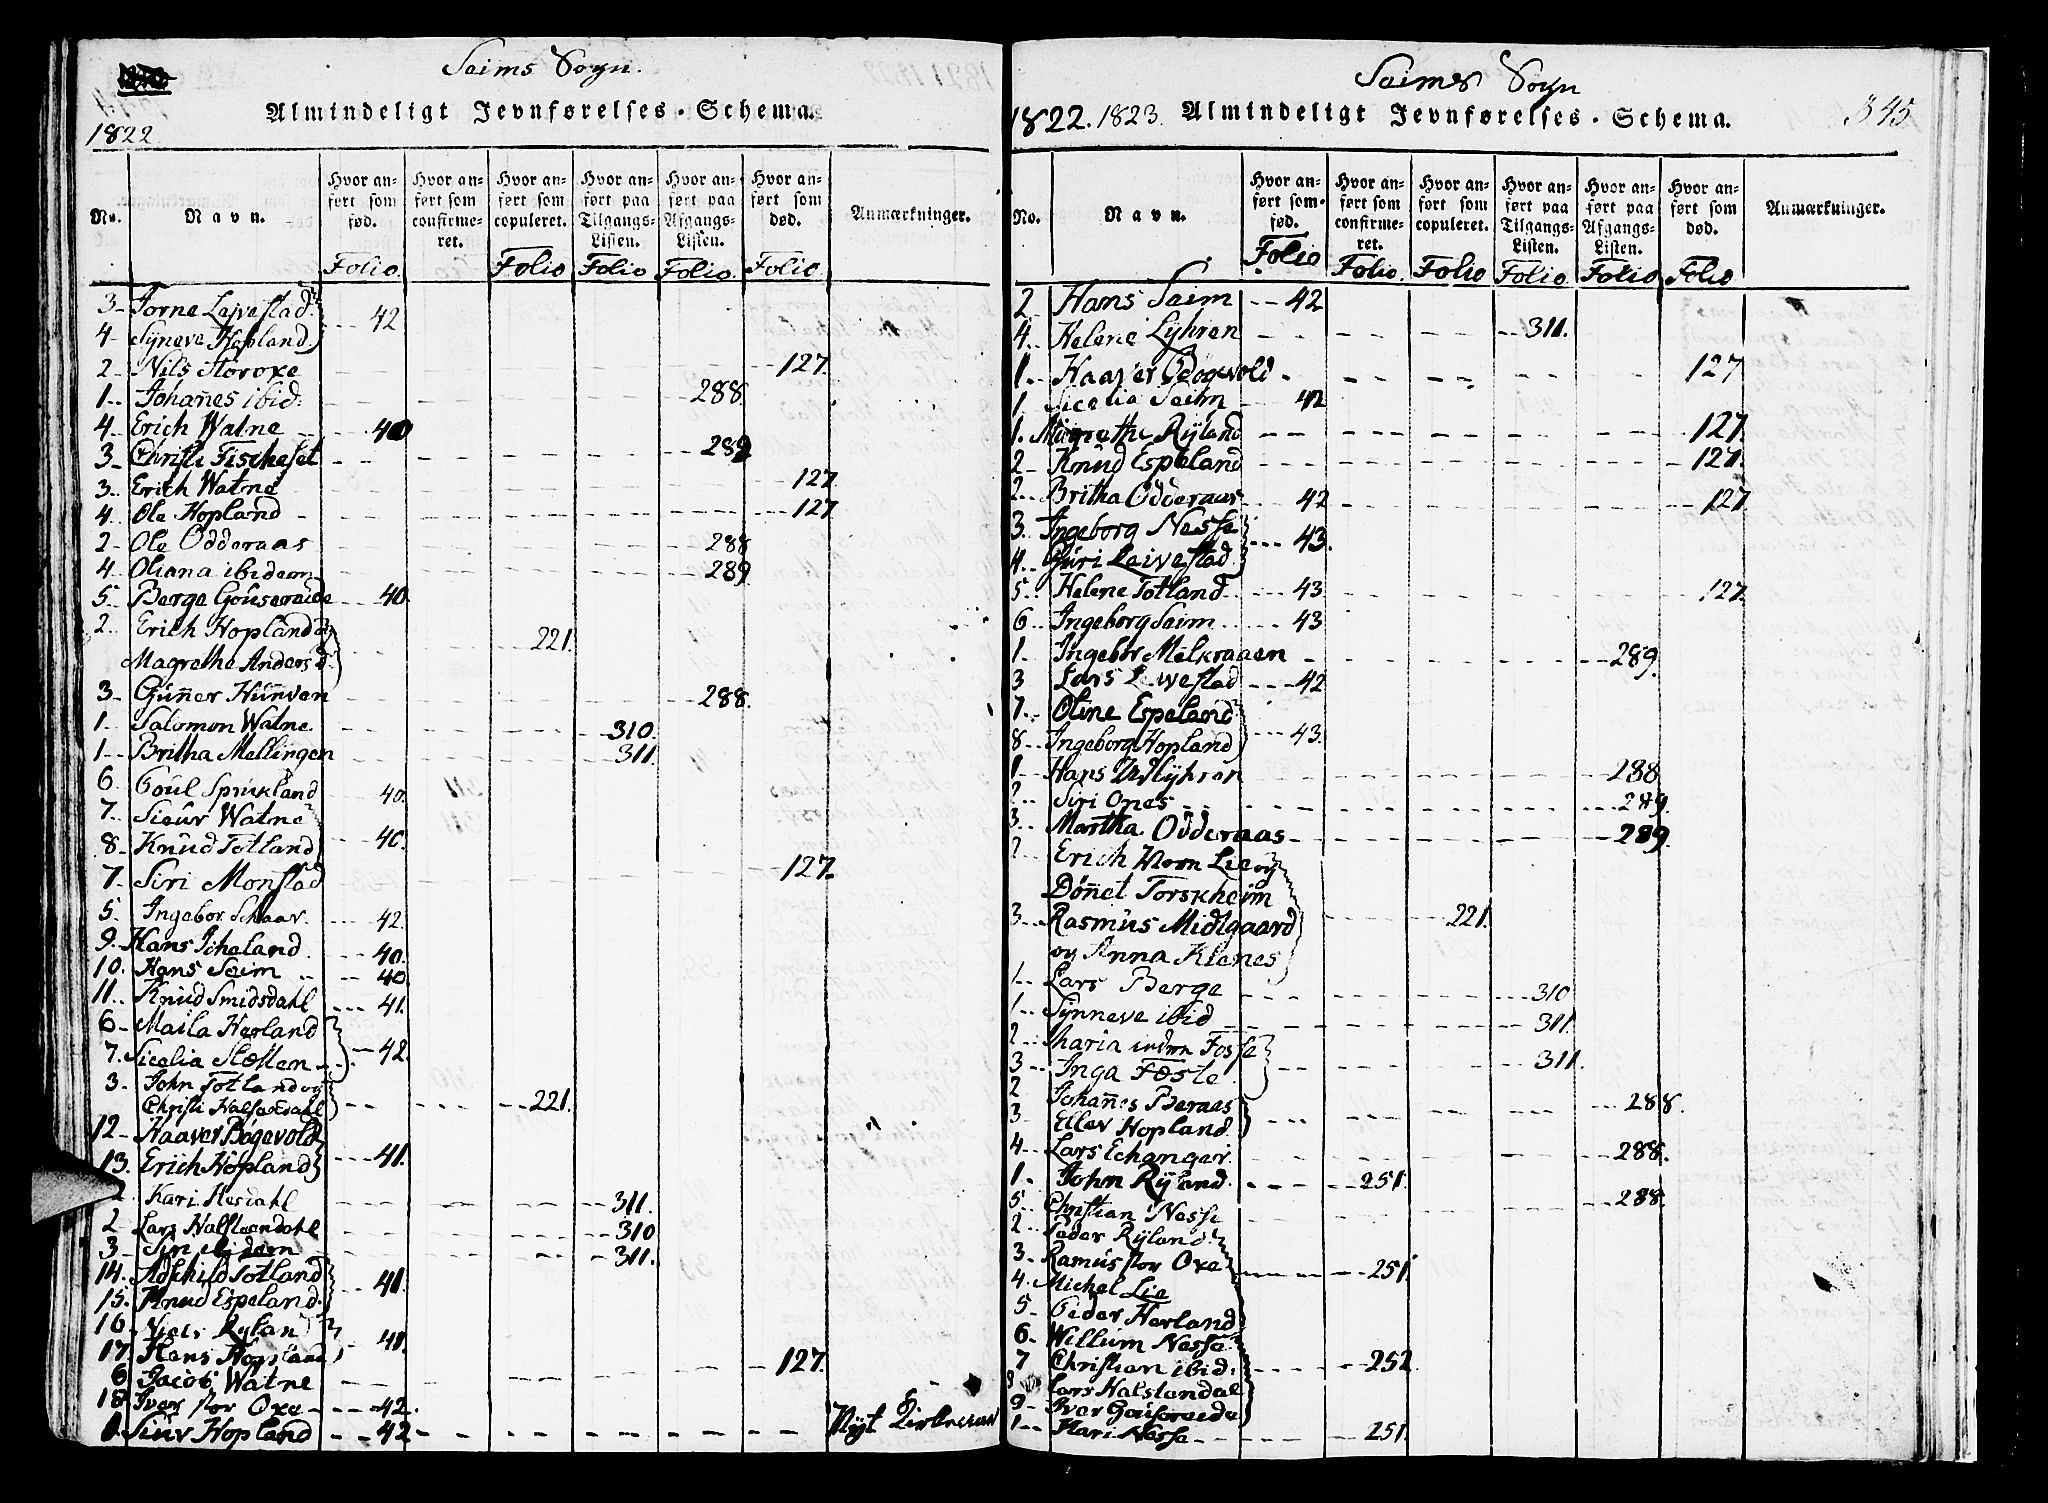 Seims Sogn.
Almindeligt Jevnførelses-Schema.
1822
No.
Navn.
Hvor anført som fød.
Hvor anført som confirmeret.
Hvor anført som copuleret.
Hvor anført paa Tilgangs-Listen.
Hvor anført paa Afgangs-Listen.
Hvor anført som død.
Anmærkninger.
Folio. Folio Folio Folio. Folio
3 Torne Leivestad
4 Syneve Hopland 42
2 Nils Storoxe 127.
1 Johannes ibid: 288.
4 Erich Watne 40
3 Christi Fischeset 289
3 Erich Watne 127
4 Ole Hopland 127
2 Ole Odderaas 288
4 Oliana ibidem 289
5 Berge Gouseraide 40.
2 Erich Hopland og
Magrethe Andersd. 221.
3 Gunner Hunven 288.
1 Salomon Watne. 310.
1 Britha Mellingen 311.
6 Poul Sprukland 40.
7 Siur Watne
8 Knud Totland 40.
7 Siri Monstad 127.
5 Ingebor Schaar. 42.
9 Hans Icheland 40.
10. Hans Seim 40.
11 Knud Smidsdahl 41.
6 Maila Herland
7. Sicelia Sletten 42.
3. John Totland og
Christi Halfandsdahl 221.
12 Haaver Bøgevold
13. Erich Hopland 41.
Kari Hesdahl 311.
2 Lars Halstendahl 310
3 Siri ibidem 311.
14. Adschild Totland
15. Knud Espeland. 41.
16 Niels Ryland
17. Hans Hopland 41.
6 Jacob Watne 127.
18 Iver stor Oxe 42.
1. Siur Hopland 42 Nyt
Seims Sogn
1822. 1823. Almindeligt Jevnførelses-Schema. 345
No.
Navn.
Hvor anført som fød.
Hvor anført som confirmeret.
Hvor anført som copuleret.
Hvor anført paa Tilgangs-Listen.
Hvor anført paa Afgangs-Listen.
Hvor anført som død.
Anmærkninger.
Folio Folio. Folio Folio. Folio Folio
2 Hans Seim 42
4 Helene Lyhren 311.
1. Haaver Bøgevold 127
1 Sicelia Seim 42
1. Magrethe Ryland 127.
2 Knud Espeland 127.
2 Britha Odderaas 42 127
3. Ingeborg Nesse
4. Guri Leivestad 43.
5. Helene Totland 43 127.
6 Ingeborg Seim 43
1 Ingebor Melkraaen 289.
3 Lars Leivestad 42
7. Oline Espeland
8 Ingeborg Hopland 43.
1 Hans Lyhren 288
2 Siri Ones 289.
3. Martha Odderaas 289.
2 Erich Horn Lie og
Dønnet Torskheim
3. Rasmus Midtgaard 221.
og Anna Klenes
1 Lars Berge 310
1 Synneve ibid 311.
2 Maria Fosse
3 Inga Fosse 311
2 Johannes Beraas 288.
3 Eller Hopland
4 Lars Echanger 288.
1 John Ryland. 251.
5 Christian Nesse 288
2 Peder Ryland
3 Ramus stor Oxe 251.
4. Michel Lie
5 Peder Herland
6 Willum Nesse
7 Christian ibid. 252
8 Lars Halstendal
9 Iver Gouseraide
1 Kari Nesse 251.